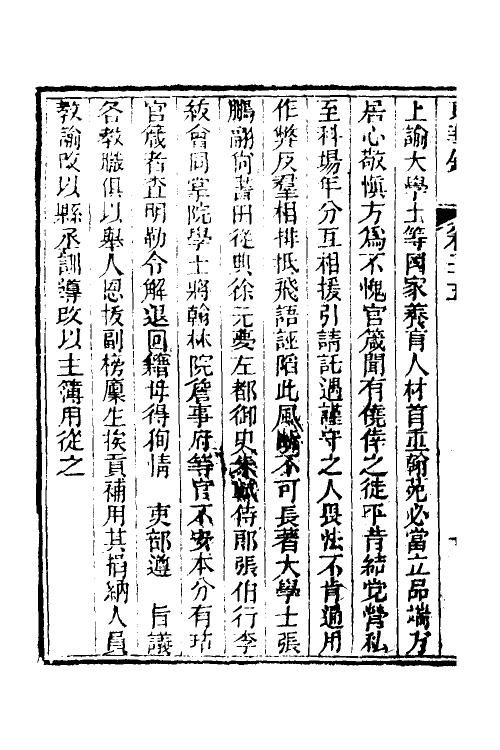 東華錄　卷二十五
上諭大學士等國家養育人材首重翰苑必當立品端方
居心敬慎方為不愧官箴聞有僥倖之徒平昔結党營私
至科場年分互相援引請託遇謹守之人畏怯不肯通用
作弊反羣相排抵飛語誣陷此風斷不可長著大學士張
鵬翮尙書田從典徐元夢左都御史朱軾侍郎張伯行李
紱會同掌院學士將翰林院詹事府等官不安本分有玷
官箴者查明勒令解退回籍毋得徇情　吏部遵　旨議
各教職俱以舉人恩拔副榜廩生挨貢補用其捐納人員
教諭改以縣丞訓導改以主簿用從之